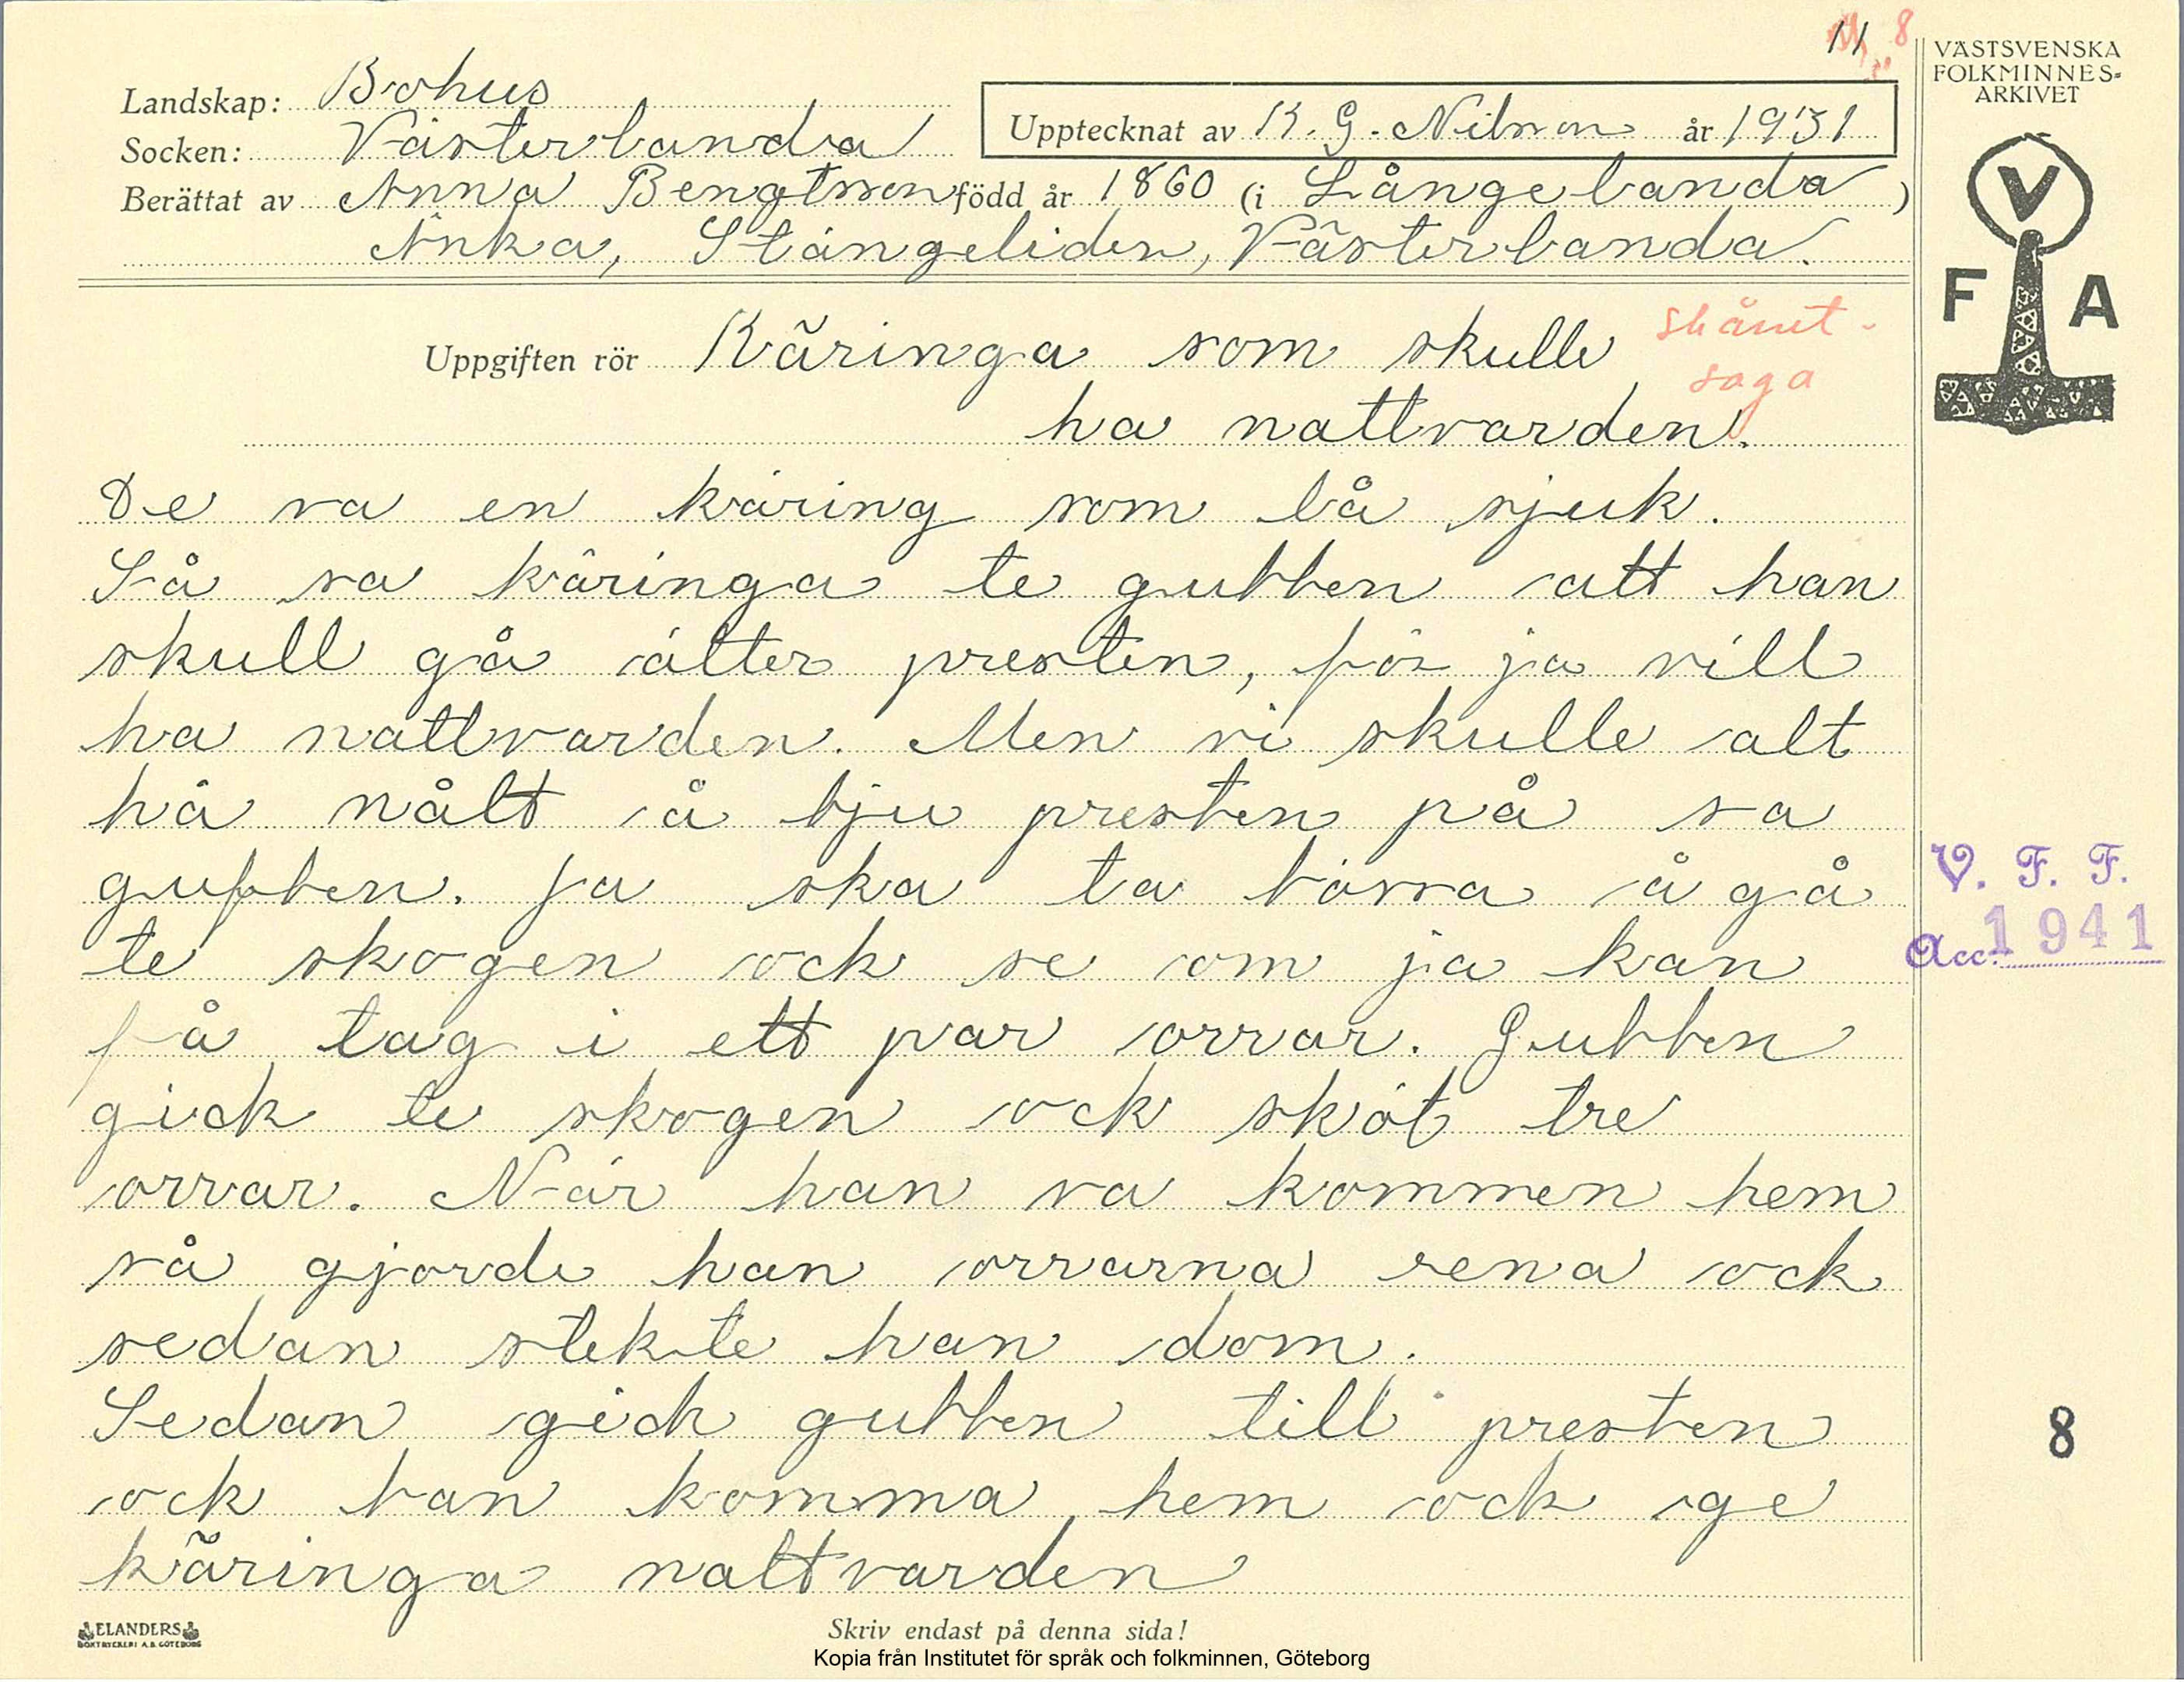 11 8
VÄSTSVENSKA
FOLKMINNES-
ARKIVET
Landskap: Bohus
Socken: Västerlanda
Upptecknat av K. G. Nilsson år 1931
Berättat av Anna Bengtsson född år 1860 (i Långelanda)
Änka, Stångeliden, Västerlanda.
V
F A
Uppgiften rör Käringa som skulle
ha nattvarden.
skämt-
saga
De va en käring som lå sjuk.
Så sa käringa te gubben att han
skull gå ätter presten, för ja vill
ha nattvarden. Men vi skulle alt
hå nålt å bju presten på sa
gubben. Ja ska ta bössa å gå
te skogen ock se om ja kan
få tag i ett par orrar. Gubben
gick te skogen ock sköt tre
orrar. När han va kommen hem
så gjorde han orrarna rena ock
sedan stekte han dom.
Sedan gick gubben till presten
ock ban komma hem ock ge
käringa nattvarden
V. F. F.
Acc. 1941
8
ELANDERS
BOKTRYCKERI A.B. GÖTEBORG
Skriv endast på denna sida!
Kopia från Institutet för språk och folkminnen, Göteborg